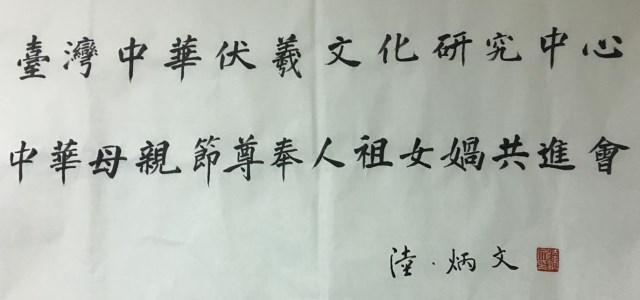 臺灣中華伏羲文化研究中心
中華母親節尊奉人祖女媧共進會
陸·炳文